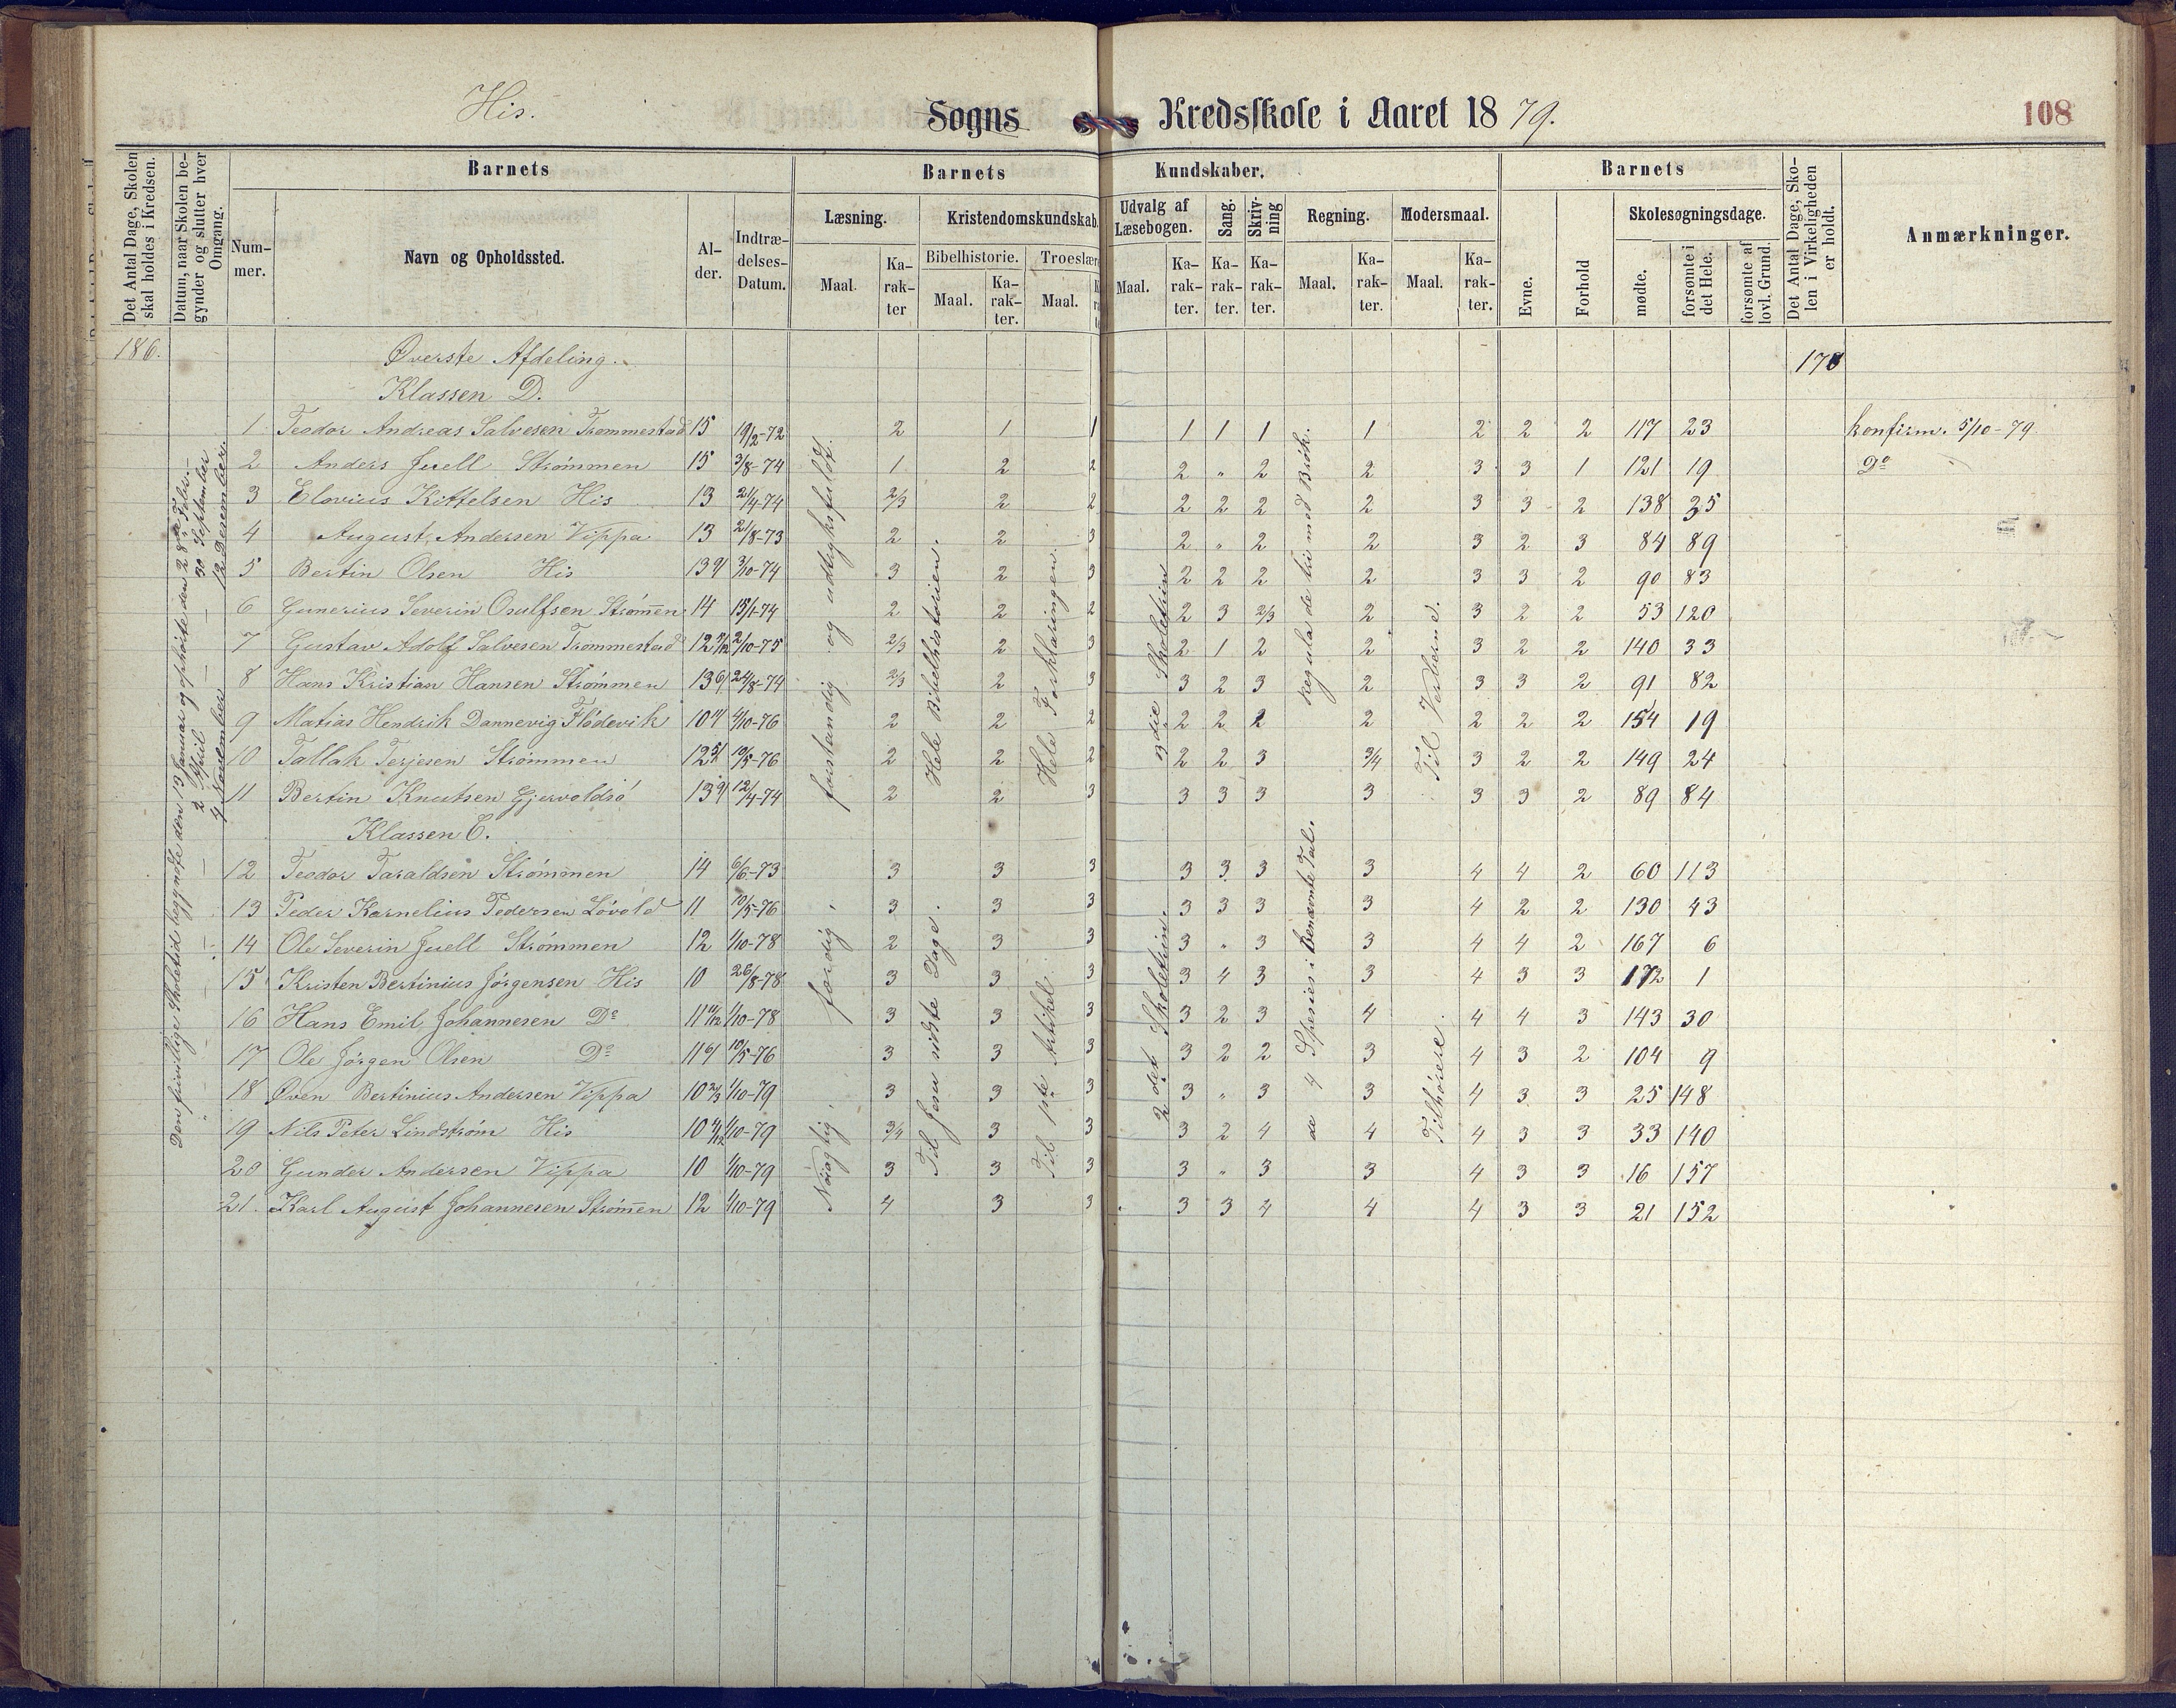 His. Sogns Kredsskole i Aaret 1879. 108
Det Antal Dage, Skolen skal holdes i Kredsen.
Datum, naar Skolen begynder og slutter hver Omgang.
Barnets
Barnets Kundskaber.
Barnets
Det Antal Dage, Skolen i Virkeligheden er holdt.
Anmærkninger.
Nummer.
Navn og Opholdssted.
Alder.
Indtrædelses-Datum.
Læsning. Kristendomskundskab. Udvalg af Læsebogen. Sang. Skrivning Regning. Modersmaal.
Bibelhistorie. Troeslær
Maal. Karakter Maal. Karakter. Maal. Maal. Karakter. Karakter. Karakter. Maal. Karakter. Maal. Karakter.
Evne. Forhold Skolesøgningsdage.
mødte. forsømte i det Hele. forsømte af lovl. Grund.
186. Øverste Afdeling. 170
Klassen D.
1 Teodor Andreas Salvesen Trommestad 15 19/2-72 2 1 1 1 1 1 1 2 2 2 117 23 konfirm. 5/10-79
2 Anders Juell Strømmen 15 3/8-74 1 2 2 2 „ 2 2 3 3 1 121 19 Do
3 Elovius Kittelsen His 13 21/4-74 2/3 2 2 2 2 2 2 3 3 2 138 35
4 August Andersen Vippa 13 21/8-73 2 2 3 2 „ 2 2 3 2 3 84 89
5 Bertin Olsen His 13 9/ 3/10-74 3 2 3 2 2 2 2 3 3 2 90 83
6 Gunerius Severin Osulfsen Strøm̅en 14 15/1-74 2 2 2 2 3 2/3 2 3 2 2 53 120
7 Gustav Adolf Salvesen Trommestad 12 2/10-75 2/3 2 3 2 1 2 2 3 2 2 140 33
8 Hans Kristian Hansen Strømmen 13 6/ 24/8-74 2/3 2 3 3 2 3 2 3 3 2 91 82
9 Matias Hendrik Dannevig Flødevik 10 4/10-76 2 2 2 2 2 2 2 2 2 2 154 19
10 Tallak Terjesen Strømmen 12 5/ 10/5-76 2 2 2 2 2 3 3/4 3 2 2 149 24
11 Bertin Knutsen Gjervoldsø 13 9/ 12/4-74 2 2 3 3 3 3 3 3 3 2 89 84
Klassen C.
12 Teodor Taraldsen Strømmen 14 6/6-73 3 3 3 3 3 3 3 4 4 2 60 113
13 Peder Kornelius Pedersen Løvold 11 10/5-76 3 3 3 3 3 3 3 4 2 2 130 43
14 Ole Severin Juell Strømmen 12 1/10-78 2 3 3 3 „ 3 3 4 4 2 167 6
15 Kristen Bertinius Jørgensen His 10 26/8-78 3 3 3 3 4 3 3 4 3 3 172 1
16 Hans Emil Johannesen Do 11 11/12 1/10-78 3 3 3 3 2 3 4 4 4 3 143 30
17 Ole Jørgen Olsen Do 11 6/ 10/5-76 3 3 3 3 2 2 3 4 3 2 104 9
18 Øven Bertinius Andersen Vippa 10 2/3 1/10-79 3 3 3 3 „ 3 3 4 3 3 25 148
19 Nils Peter Lindstrøm His 10 1/10-79 3/4 3 3 3 2 4 4 4 3 3 33 140
20 Gunder Andersen Vippa 10 1/10-79 3 3 3 3 „ 3 3 4 3 3 16 157
21. Karl August Johannesen Strøm̅en 12 1/10-79 4 3 3 3 3 4 4 4 3 3 21 152
Den frivillige Skoletid begyndte den 13 Januar og ophørte den 28de Febr.
„ 2 April 30 September
4 November 12 Desember.
forstandig og udtryksfuldt.
Hele Bibelhistorien.
Hele Forklaringen.
3die Skoletrin
Regula de tri med Brøk.
Til Verberne.
Nøiagtig, færdig,
Til Jesu sidste Dage.
Til 1ste Artikel
2det Skoletrin.
de 4 Spesies i Benævnte Tal.
Tilhørere.